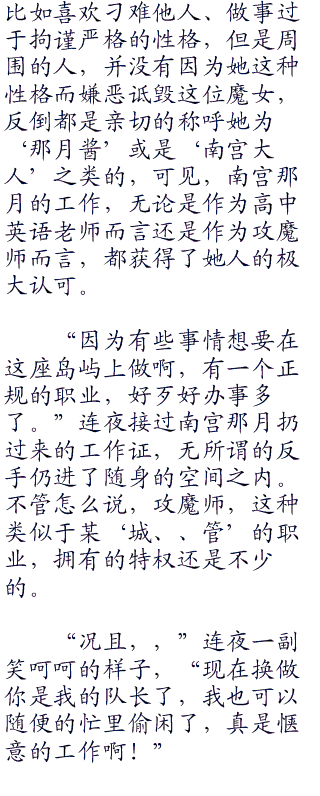 比如喜欢刁难他人、做事过
于拘谨严格的性格，但是周
围的人，并没有因为她这种
性格而嫌恶诋毁这位魔女，
反倒都是亲切的称呼她为
‘那月酱’或是‘南宫大
人’之类的，可见，南宫那
月的工作，无论是作为高中
英语老师而言还是作为攻魔
师而言，都获得了她人的极
大认可。
“因为有些事情想要在
这座岛屿上做啊，有一个正
规的职业，好歹好办事多
了。”连夜接过南宫那月扔
过来的工作证，无所谓的反
手仍进了随身的空间之内。
不管怎么说，攻魔师，这种
类似于某‘城、、管’的职
业，拥有的特权还是不少
的。
“况且，，”连夜一副
笑呵呵的样子，“现在换做
你是我的队长了，我也可以
随便的忙里偷闲了，真是惬
意的工作啊！”